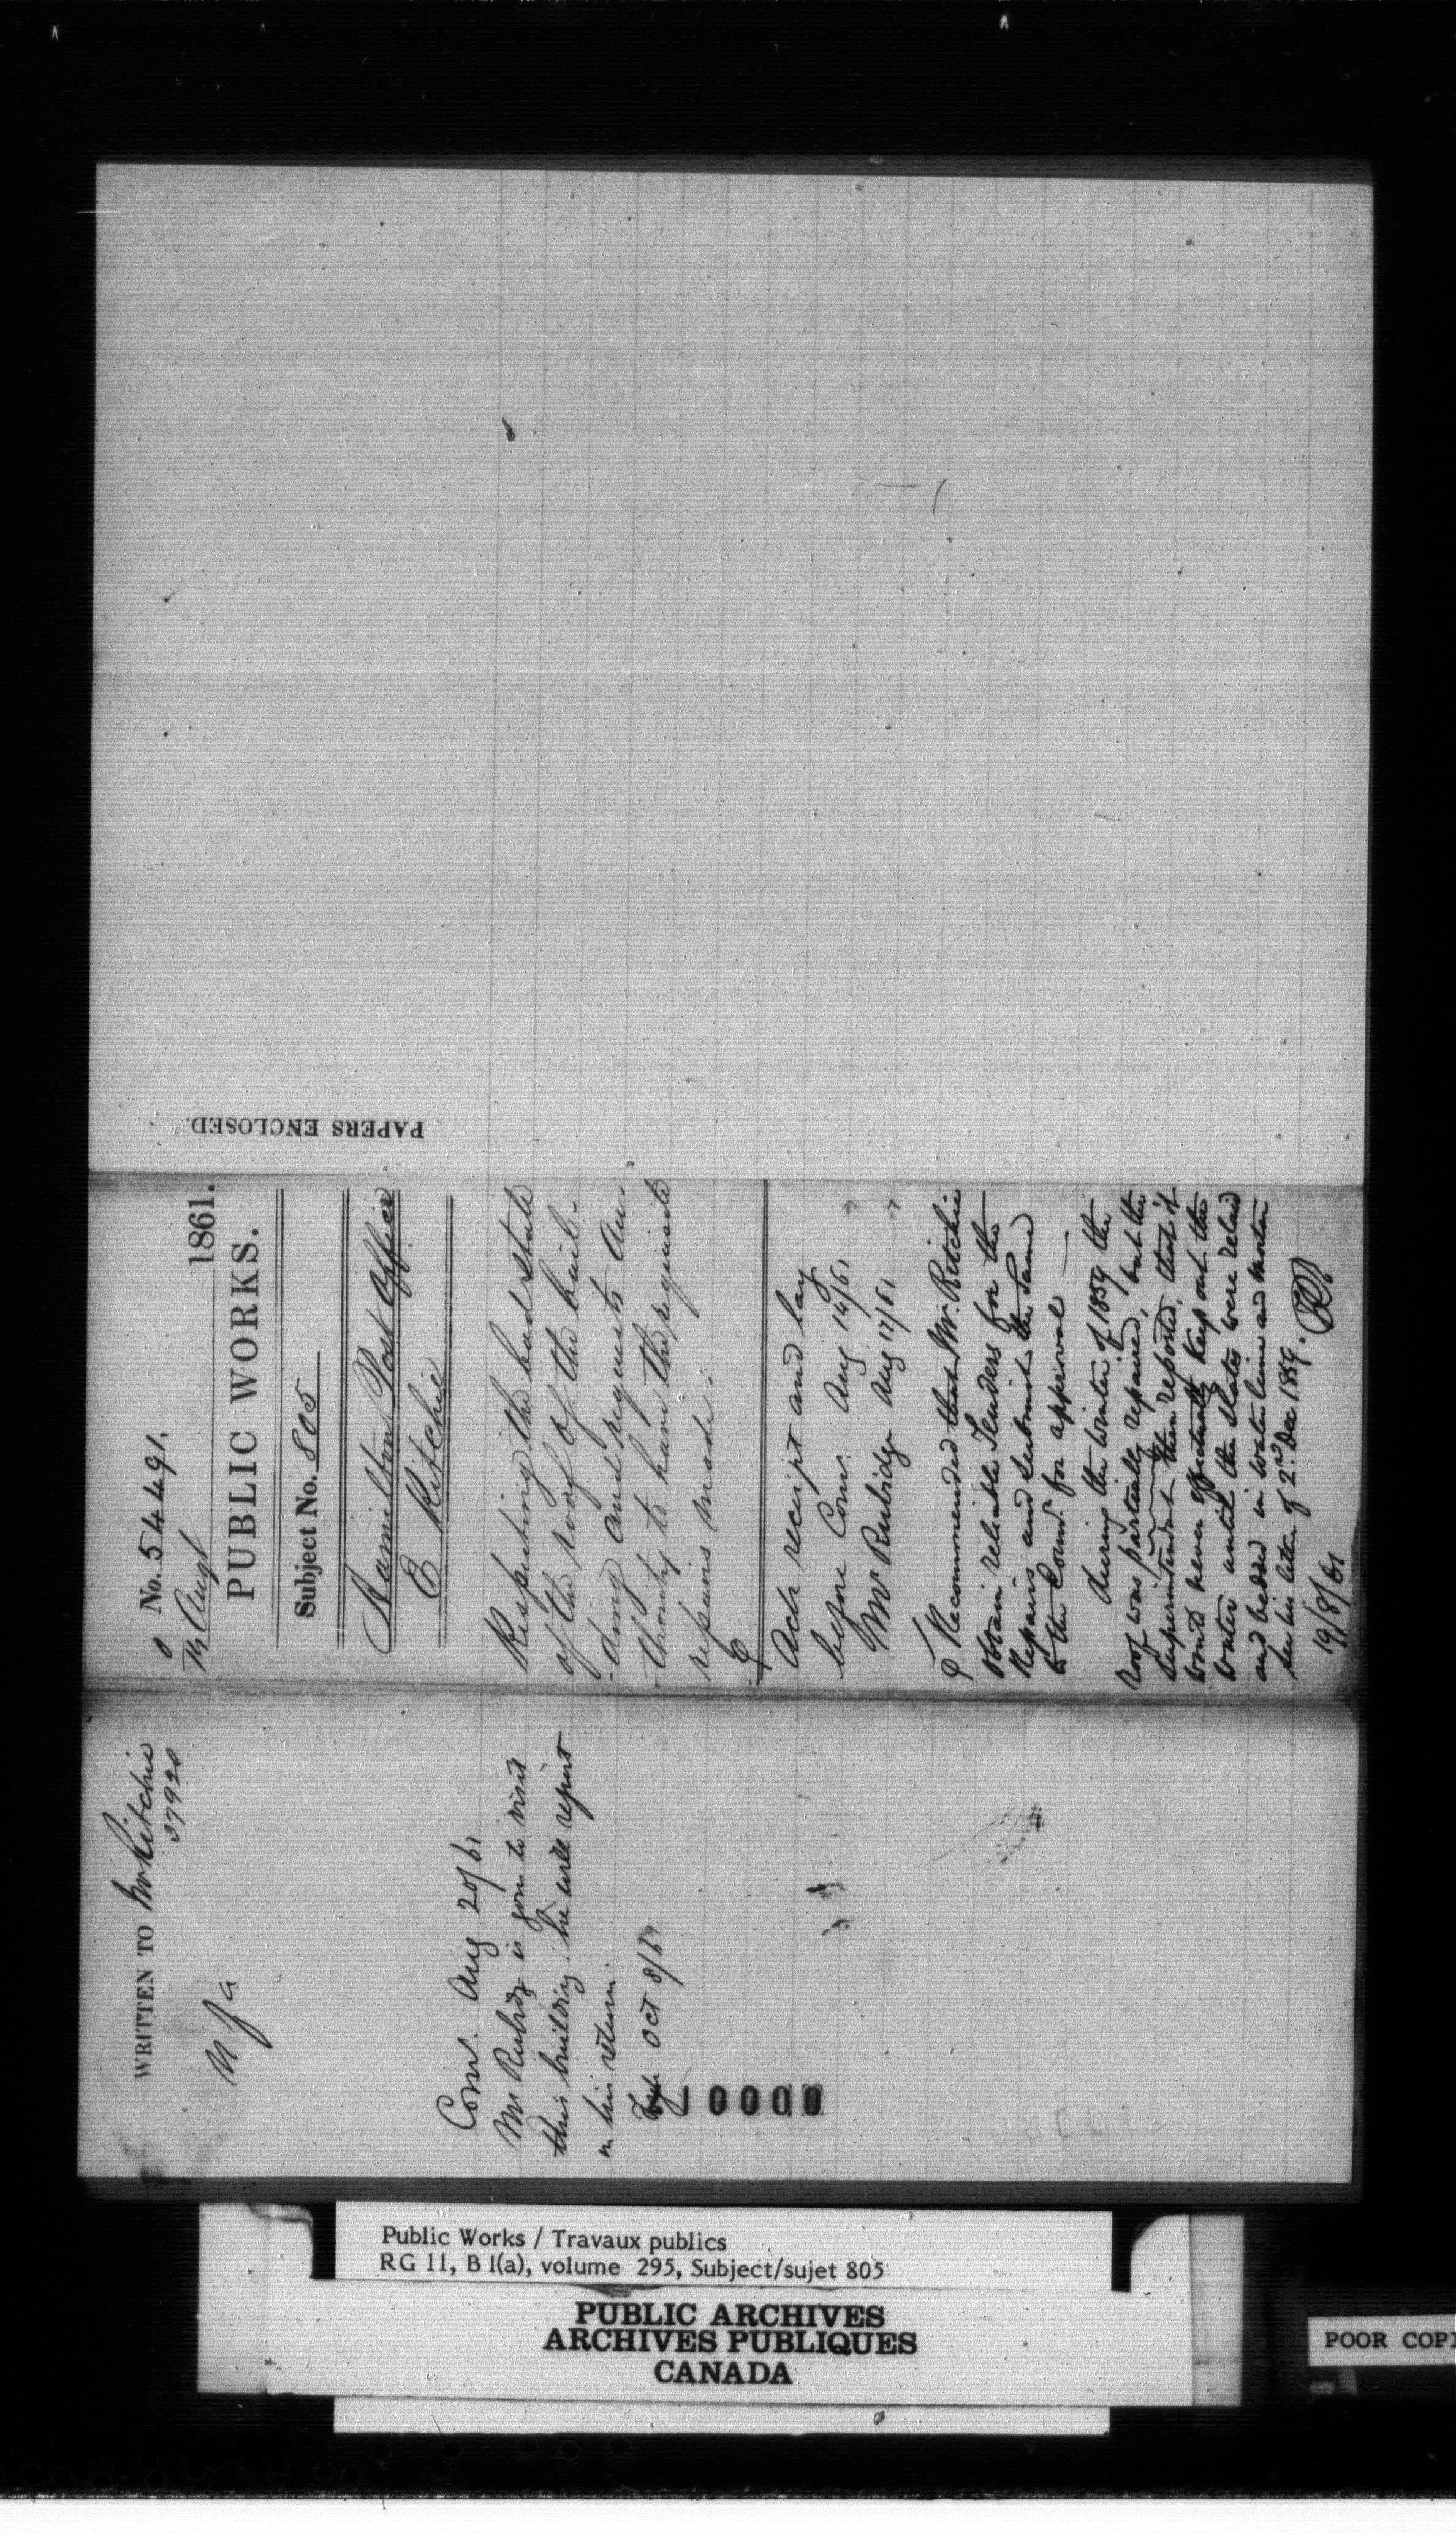 No. 54491.
7th Augt 1861.
PUBLIC WORKS.
Subject No. 805
Hamilton Post Office
E Ritchie
Respecting the bad state
of the roof of the buil-
-ding and requests Au-
-thority to have the requisite
repairs made.
Ack receipt and lay
before Com. Aug 14/61
Mr Rubidge Aug 17/61
Recommended that Mr. Ritchie
obtain reliable Tenders for the
Repairs and submit the same
to the Comr. for approval —
During the winter of 1859 the
roof was partially repaired, but the
Superintendent then reported, that it
would never effectually keep out the
water until the slates were relaid
and bedded in water lime and mortar
see his letter of 2nd Dec 1859.
19/8/61
WRITTEN TO Mr Ritchie
37920
n f a
Com. Aug 20/61
Mr Rubidge is gone to visit
this building. he will report
on his return.
Oct 8/61
0000
PAPERS ENCLOSED.
Public Works / Travaux publics
RG 11, B 1(a), volume 295, Subject/sujet 805
PUBLIC ARCHIVES
ARCHIVES PUBLIQUES
CANADA
POOR COPI